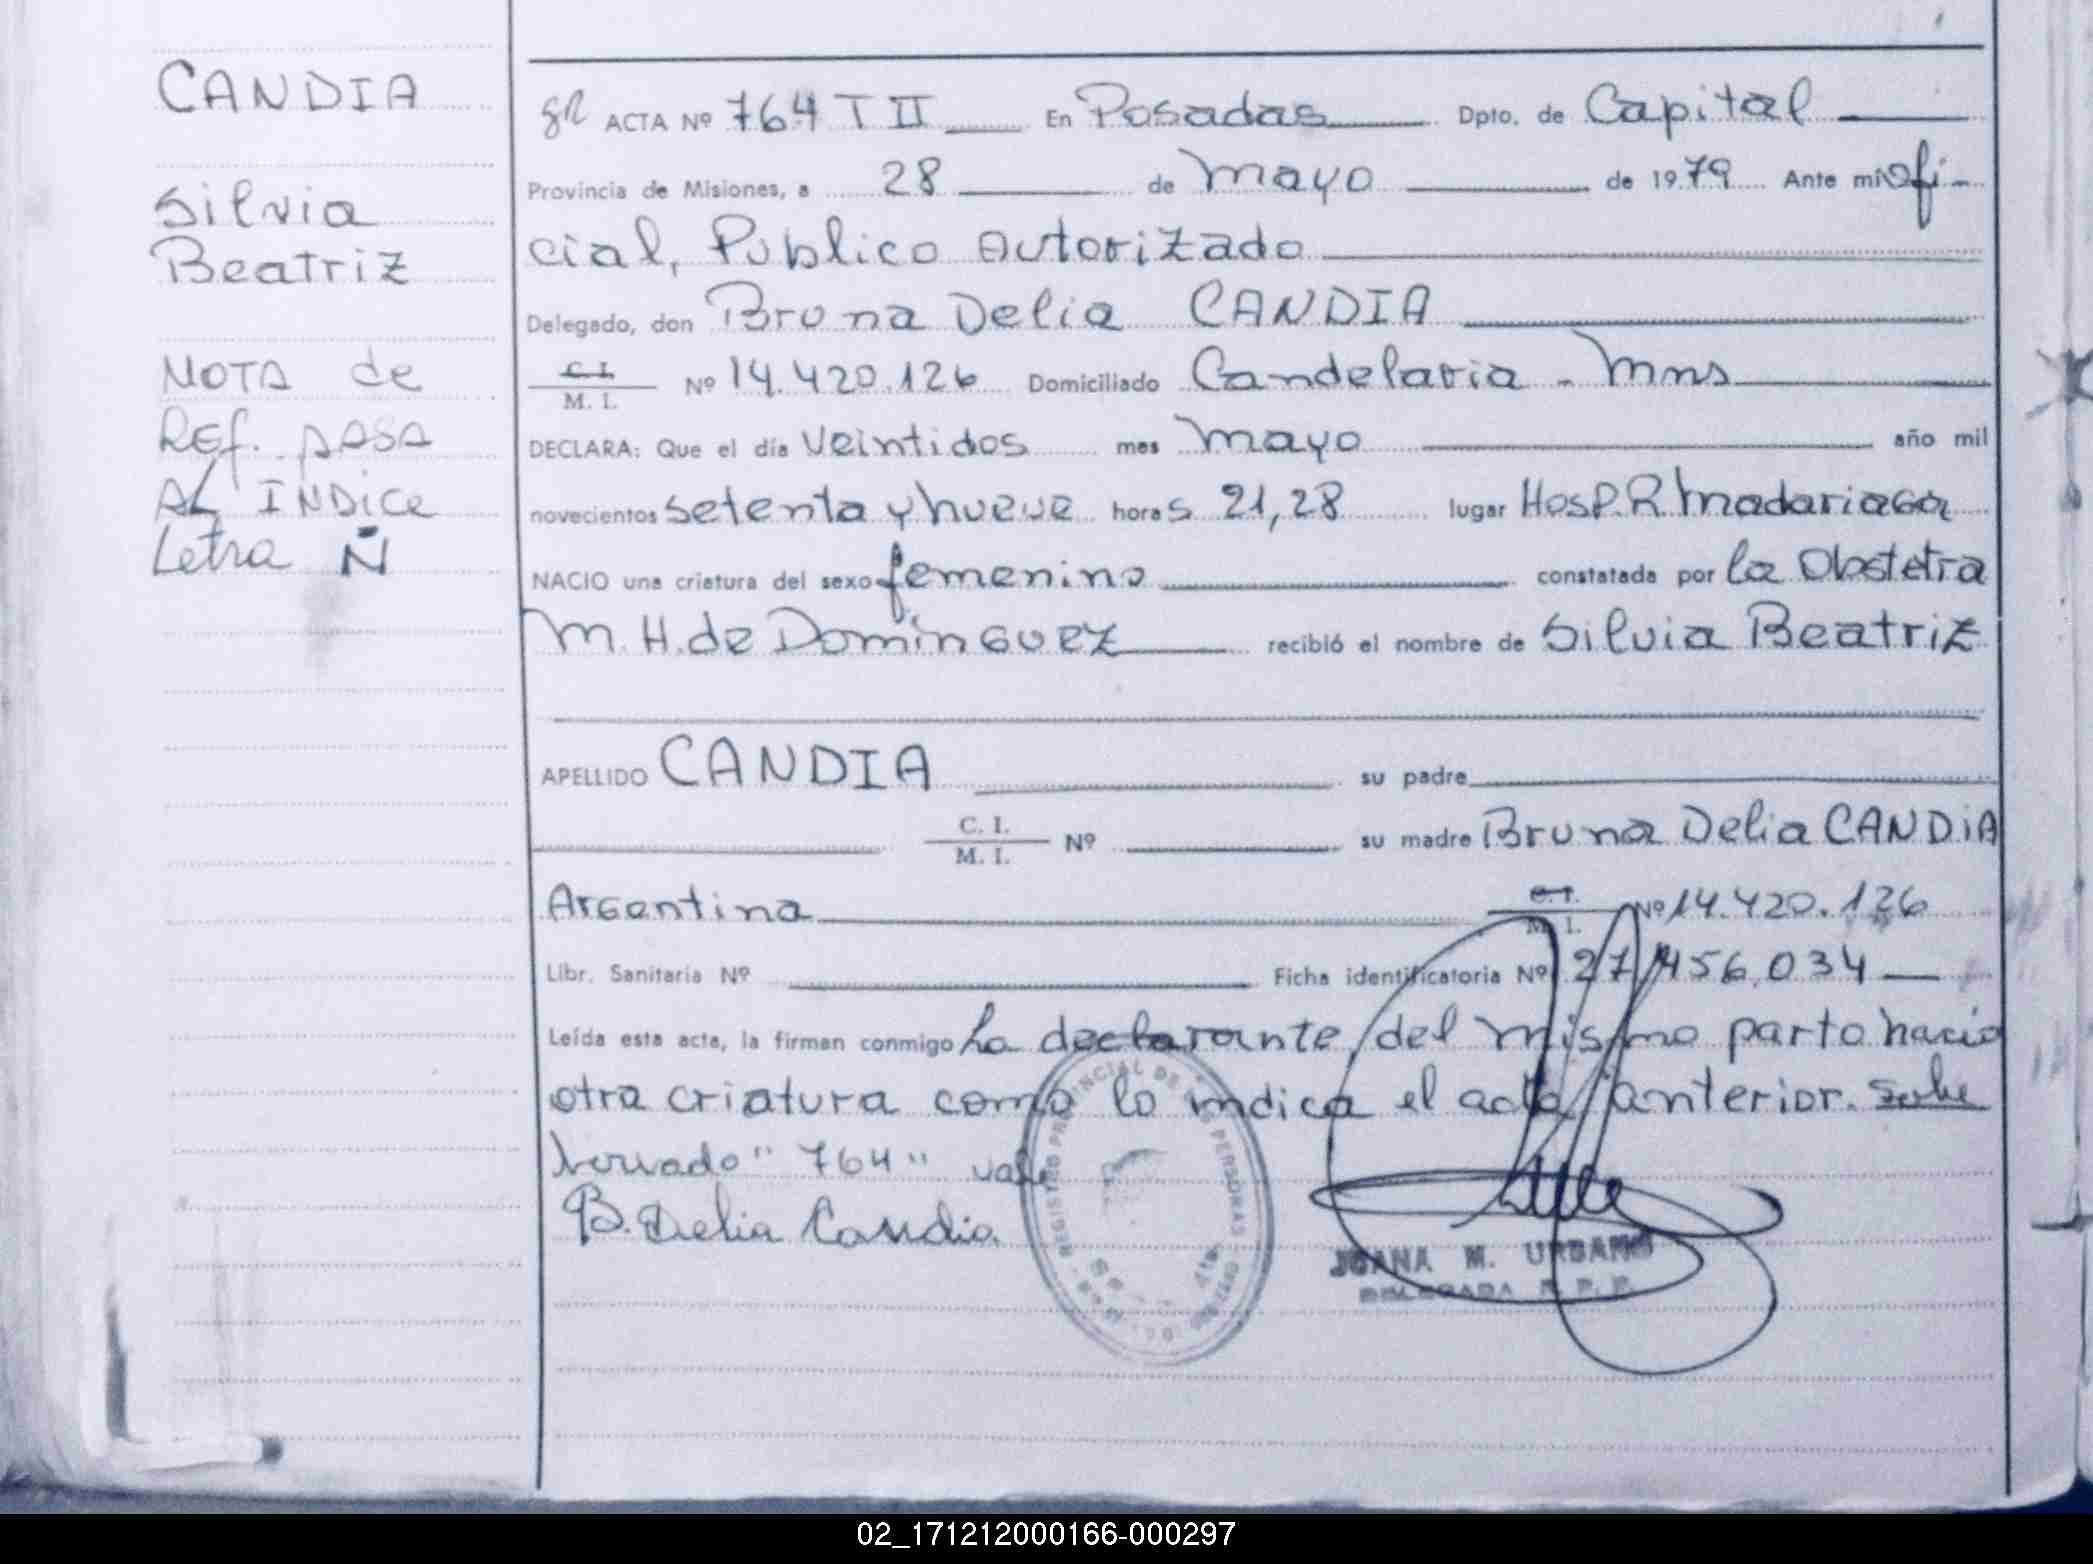 CANDIA
Silvia
Beatriz
NOTA de
Ref. pasa
AL INDice
Letra Ñ
ACTA Nº 764 T II En Posadas Dpto. de Capital
Provincia de Misiones, a 28 de Mayo de 1979 Ante mi Ofi-
cial, Publico Autorizado
Delegado, don Bruna Delia CANDIA
C. I.
M. I. Nº 14.420.126 Domiciliado Candelaria - Mns
DECLARA: Que el día Veintidos mes Mayo año mil
novecientos setenta y nueve horas 21,28 lugar Hosp. R. Madariaga
NACIO una criatura del sexo femenino constatada por la Obstetra
M. H. de Dominguez recibió el nombre de Silvia Beatriz
APELLIDO CANDIA su padre
C. I.
M. I. Nº su madre Bruna Delia CANDiA
Argentina C. I.
M. I. Nº 14.420.126
Libr. Sanitaria Nº Ficha identificatoria Nº 27.456.034
Leída esta acta, la firman conmigo La declarante, del mismo parto nacio
otra criatura como lo indica el acta anterior. Sobre
borrado "764" vale
B. Delia Candia
REGISTRO PROVINCIAL DE LAS PERSONAS
JUANA M. URBANO
DELEGADA R. P. P.
02_171212000166-000297